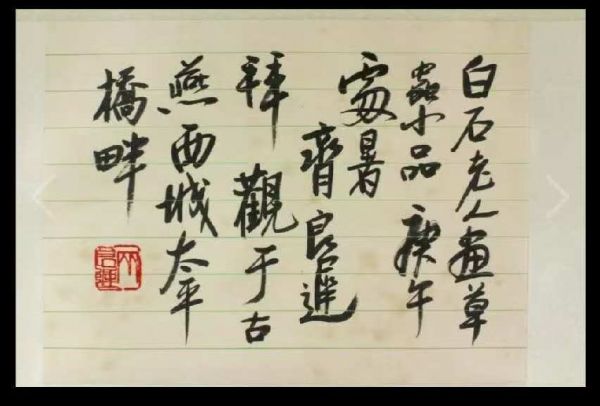 白石老人畫草
蟲小品 庚午
處暑
齊良遲
拜觀于古
燕西城太平
橋畔